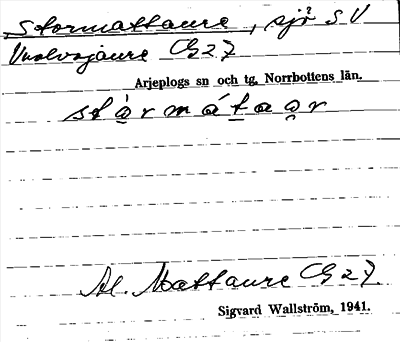 Stormattaure, sjö SV
Vuolvojaure C27
Arjeplogs sn och tg, Norrbottens län.
stạ̀rmát̠ao̥r
Al. Mattaure C27
Sigvard Wallström, 1941.